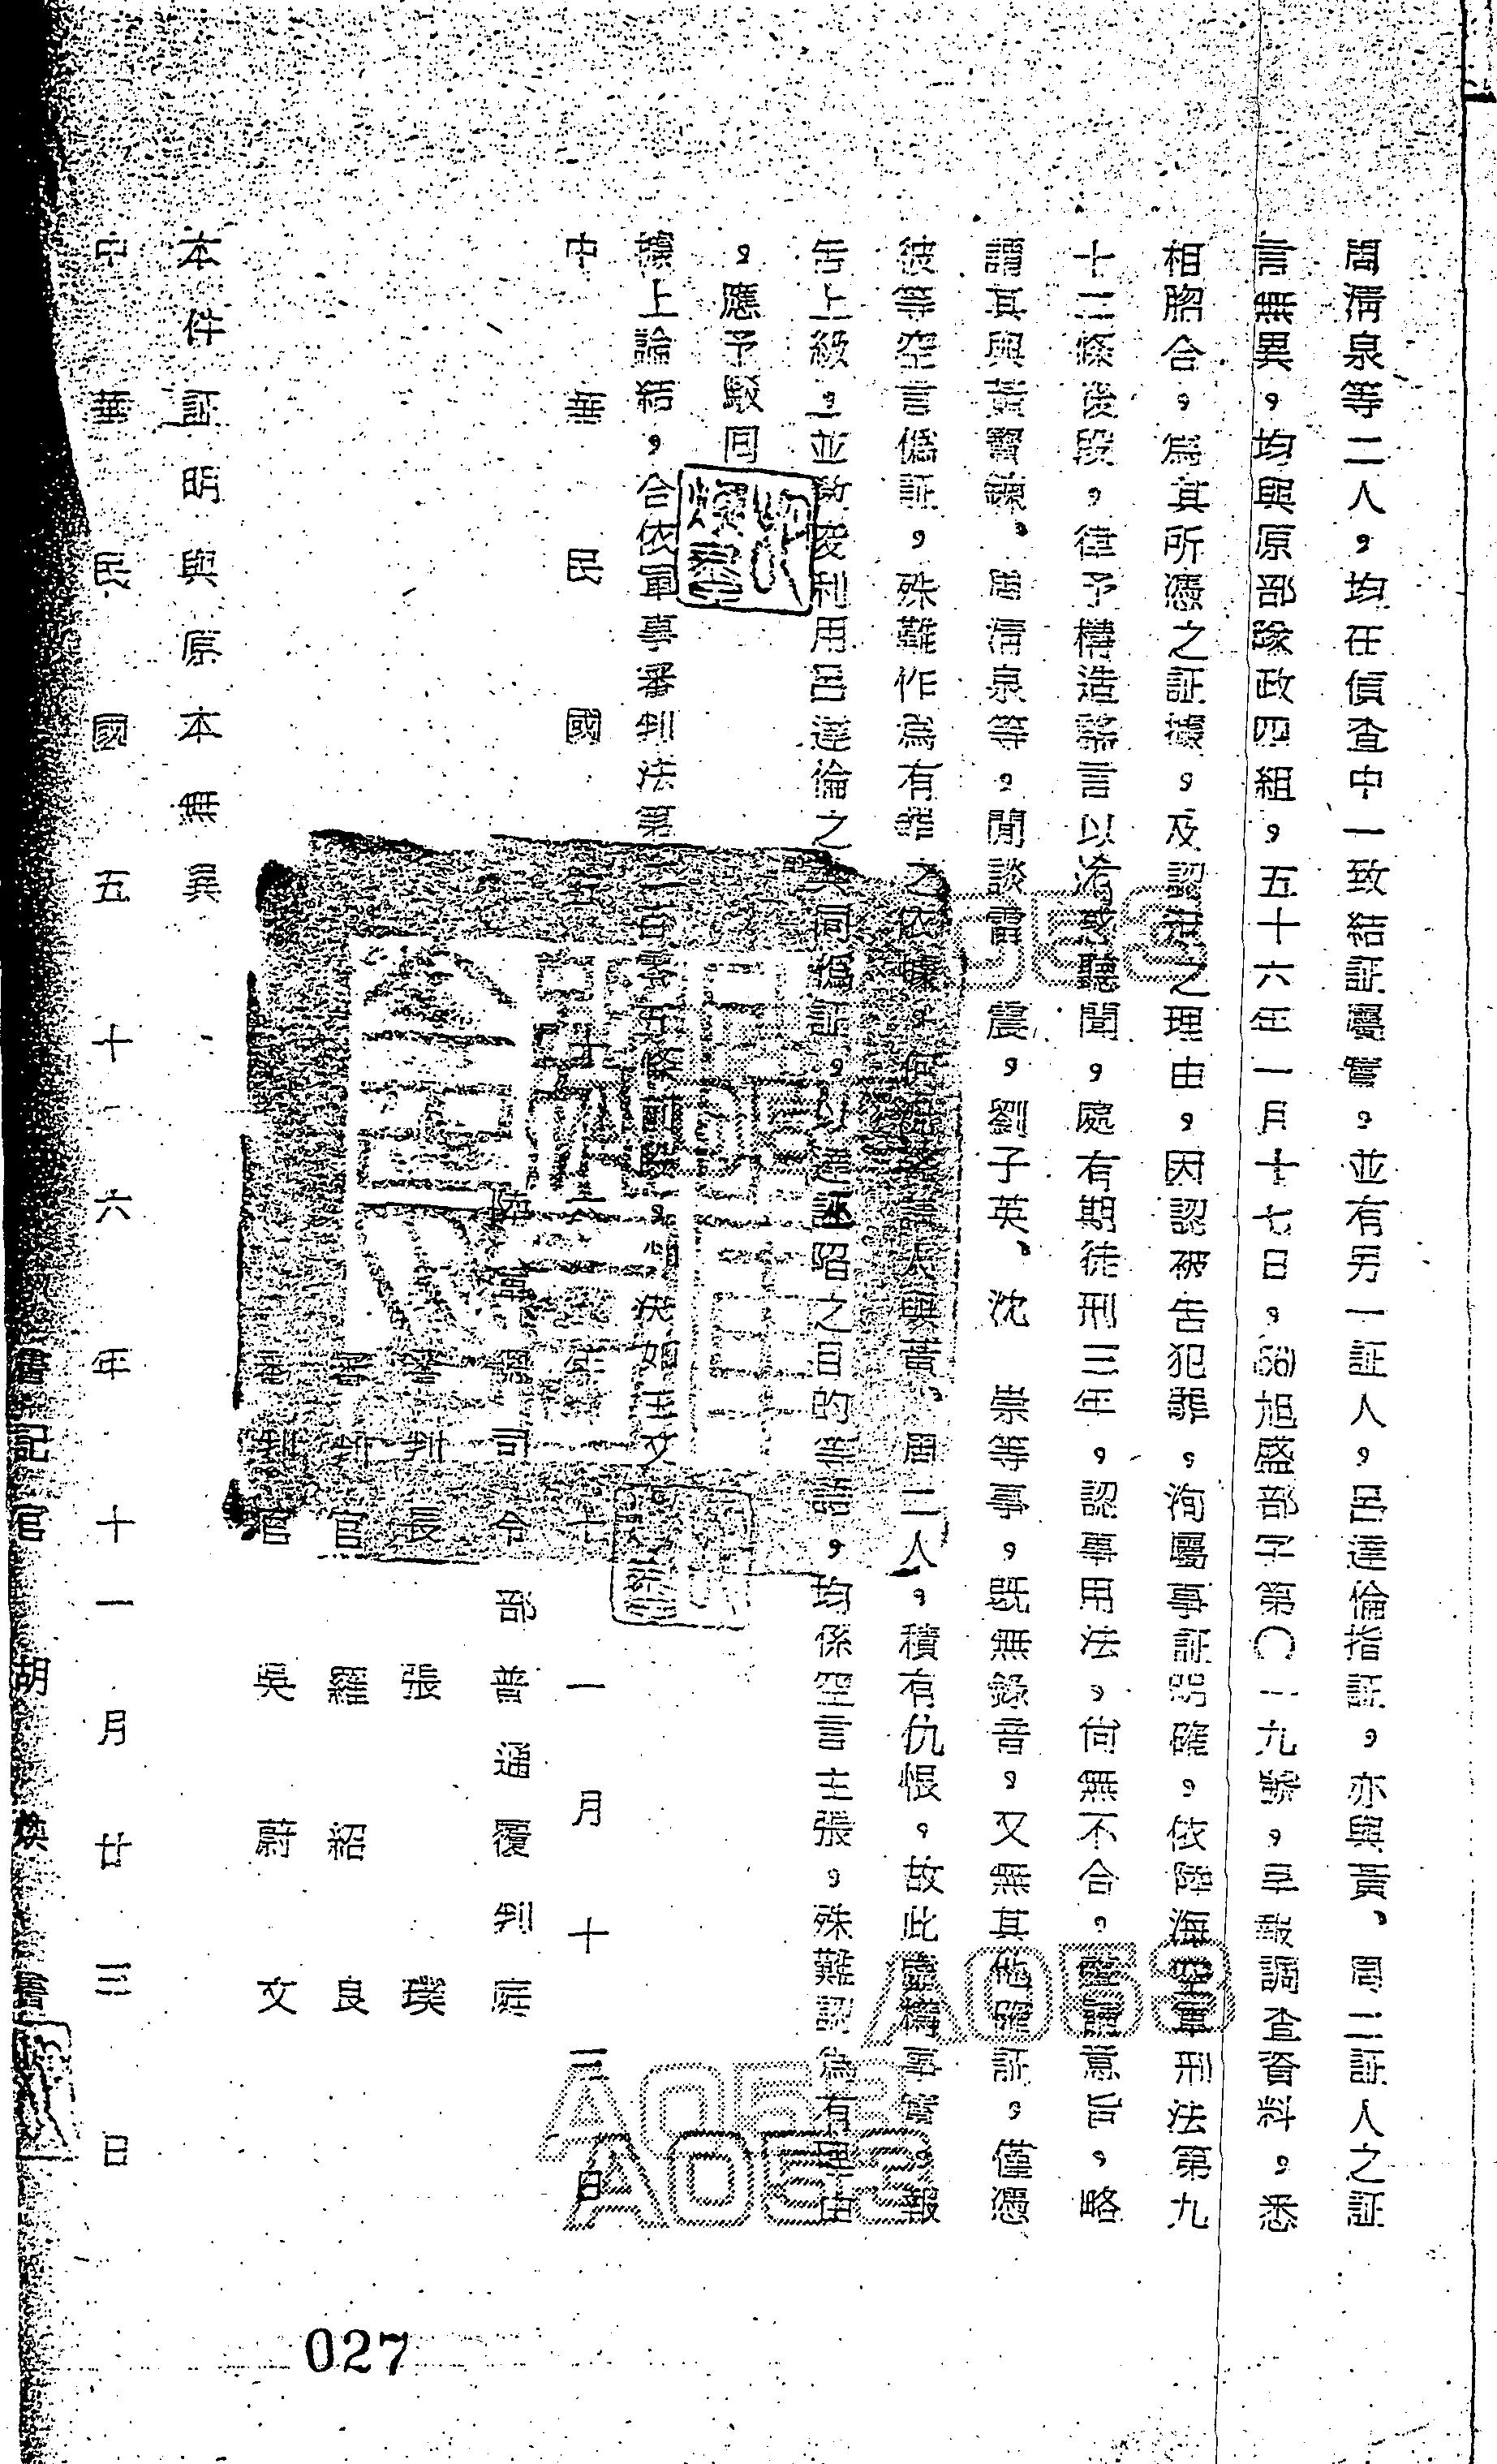 周清泉等二人，均在偵查中一致結証屬實，並有另一証人，呂達倫指証，亦與黃、周二証人之証
言無異，均與原部隊政四組，五十六年一月十七日，(56)旭盛部字第〇一九號，呈報調查資料，悉
相脗合，為其所憑之証據，及認定之理由，因認被告犯罪，洵屬事証明確，依陸海空軍刑法第九
十二條後段，律予構造謠言以淆惑聽聞，處有期徒刑三年，認事用法，尚無不合，聲請意旨，略
謂其與黃寶鍊、周清泉等，閒談雷震，劉子英、沈 崇等事，既無錄音，又無其他確証，僅憑
彼等空言偽証，殊難作為有罪之依據，與黃、周二人，積有仇恨，故此虛構事實，報
告上級，並教唆利用呂達倫之共同偽証，以達誣陷之目的等語，均係空言主張，殊難認為有理由
，應予駁回
據上論結，合依軍事審判法第二百零五條前段，判決如主文
中華民國五十六年十一月十三日
陸軍總司令部普通覆判庭
審判長 張 璞
審判官 羅紹良
審判官 吳蔚文
本件証明與原本無異
中華民國五十六年十一月廿三日
書記官 胡煥書
A053
A053
A053
A053
027